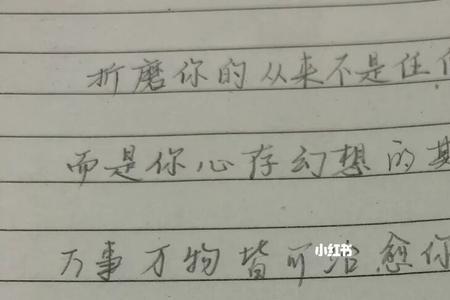 折磨你的从来不是任
而是你心存幻想的
万事万物皆可治愈你
小红书